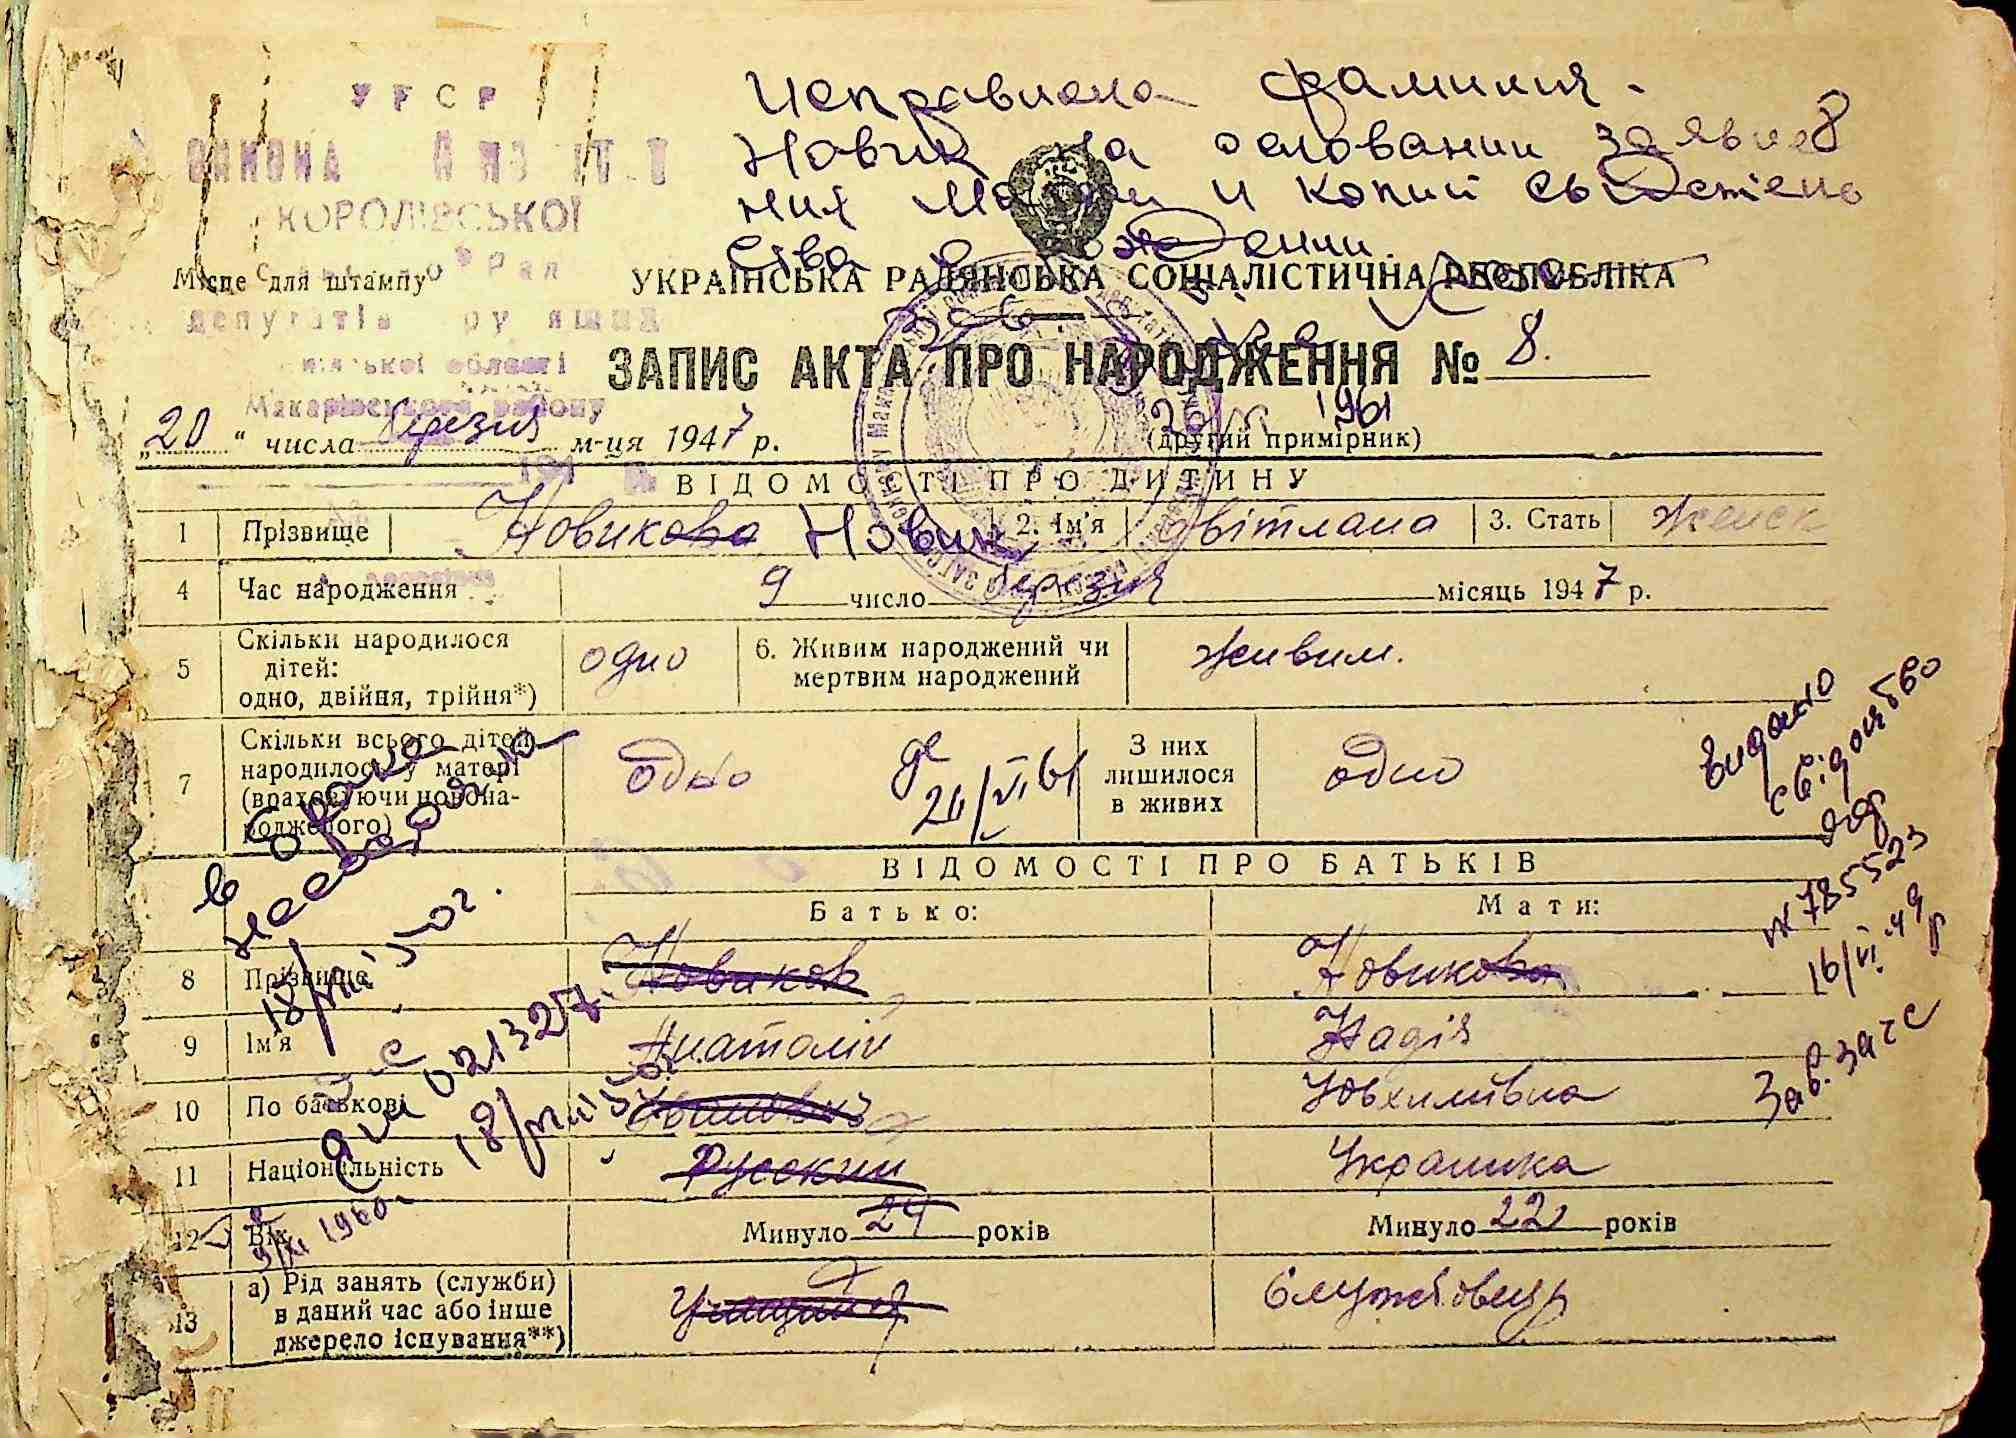 УРСР
КОРОЛІВСЬКОЇ
Місце для штампу
депутатів
області
Макарівського району
Исправлена фамилия
Новик на основании заявле
ния Матери и копий свидетель
ства о рождении.
УКРАЇНСЬКА РАДЯНСЬКА СОЦІАЛІСТИЧНА РЕСПУБЛІКА
ЗАПИС АКТА ПРО НАРОДЖЕННЯ № 8.
1961
„20“ числа березня м-ця 1947 р. (другий примірник)
ВІДОМОСТІ ПРО ДИТИНУ
1 Прізвище Новикова Новик 2. Ім'я Світлана 3. Стать Женск
4 Час народження 9 число березня місяць 1947 р.
5 Скільки народилося дітей: одно, двійня, трійня*) одно 6. Живим народжений чи мертвим народжений живим.
7 Скільки всього дітей народилось у матері (враховуючи новонародженого) одно 20/VI 61 З них лишилося в живих одно
Видано
свідоцтво
№ 785523
16/VI.49 р
Зав. загс
в браке
18/VIII 50 г.
021327
18/VIII 50 г.
1960 г.
ВІДОМОСТІ ПРО БАТЬКІВ
Батько: Мати:
8 Прізвище Новиков Новикова
9 Ім'я Анатолій Надія
10 По батькові Юхимівна
11 Національність Русский Украинка
12 Вік Минуло 24 років Минуло 22 років
13 а) Рід занять (служби) в даний час або інше джерело існування**) Учащийся Службовець